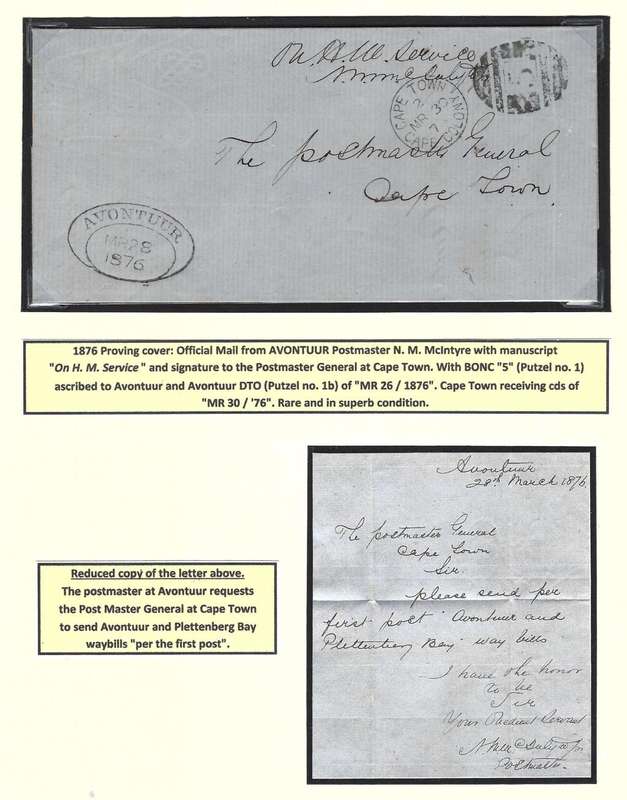 On H. M. Service
CAPE TOWN
MR 30
CAPE COLONY
5
The postmaster General
Cape Town.
AVONTUUR
MR 28
1876
1876 Proving cover: Official Mail from AVONTUUR Postmaster N. M. McIntyre with manuscript
"On H. M. Service " and signature to the Postmaster General at Cape Town. With BONC "5" (Putzel no. 1)
ascribed to Avontuur and Avontuur DTO (Putzel no. 1b) of "MR 26 / 1876". Cape Town receiving cds of
"MR 30 / '76". Rare and in superb condition.
Avontuur
28th March 1876
The postmaster General
Cape Town
Sir
please send per
first post Avontuur and
Plettenberg Bay way bills
I have the honor
to be
Sir
Your Obedient Servant
Postmaster.
Reduced copy of the letter above.
The postmaster at Avontuur requests
the Post Master General at Cape Town
to send Avontuur and Plettenberg Bay
waybills "per the first post".